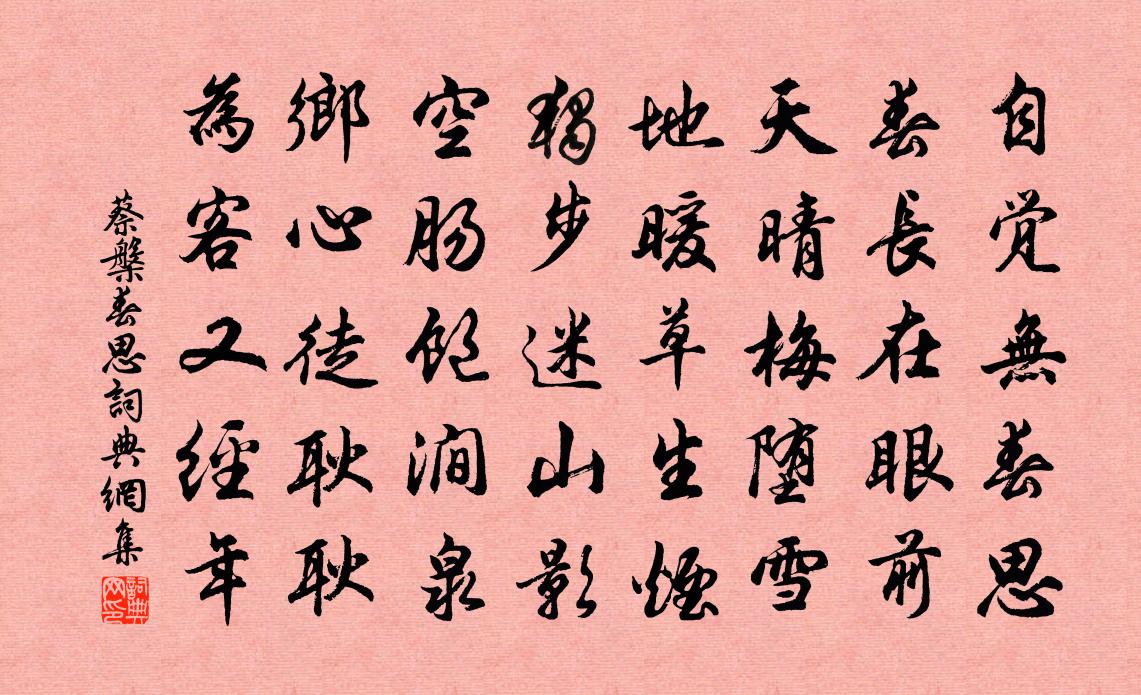 自覺無春思
春長在眼前
天晴梅墮雪
地暖草生煙
獨步迷山影
空腸飽澗泉
鄉心徒耿耿
為客又經年
蔡槃春思詞典網集
詞典网印